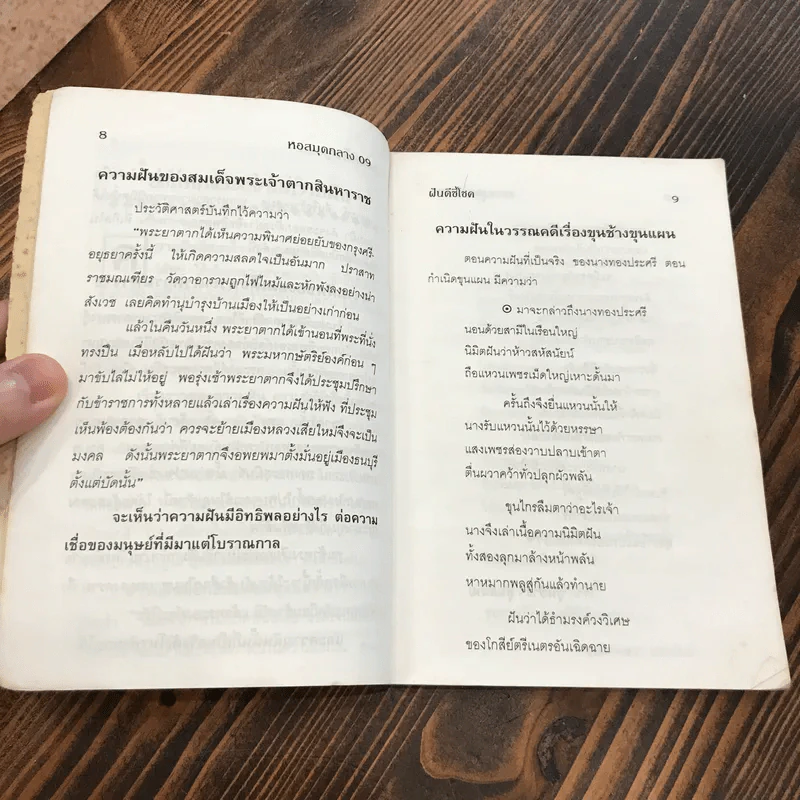 8
หอสมุดกลาง 09
ความฝันของสมเด็จพระเจ้าตากสินหาราช
ประวัติศาสตร์บันทึกไว้ความว่า
"พระยาตากได้เห็นความพินาศย่อยยับของกรุงศรี-
อยุธยาครั้งนี้ ให้เกิดความสลดใจเป็นอันมาก ปราสาท
ราชมณเฑียร วัดวาอารามถูกไฟไหม้และหักพังลงอย่างน่า
สังเวช เลยคิดทำนุบำรุงบ้านเมืองให้เป็นอย่างเก่าก่อน
แล้วในคืนวันหนึ่ง พระยาตากได้เข้านอนที่พระที่นั่ง
ทรงปืน เมื่อหลับไปได้ฝันว่า พระมหากษัตริย์องค์ก่อน ๆ
มาขับไล่ไม่ให้อยู่ พอรุ่งเช้าพระยาตากจึงได้ประชุมปรึกษา
กับข้าราชการทั้งหลายแล้วเล่าเรื่องความฝันให้ฟัง ที่ประชุม
เห็นพ้องต้องกันว่า ควรจะย้ายเมืองหลวงเสียใหม่จึงจะเป็น
มงคล ดังนั้นพระยาตากจึงอพยพมาตั้งมั่นอยู่เมืองธนบุรี
ตั้งแต่บัดนั้น"
จะเห็นว่าความฝันมีอิทธิพลอย่างไร ต่อความ
เชื่อของมนุษย์ที่มีมาแต่โบราณกาล
ฝันดีชี้โชค
9
ความฝันในวรรณคดีเรื่องขุนช้างขุนแผน
ตอนความฝันที่เป็นจริง ของนางทองประศรี ตอน
กำเนิดขุนแผน มีความว่า
๏ มาจะกล่าวถึงนางทองประศรี
นอนด้วยสามีในเรือนใหญ่
นิมิตฝันว่าท้าวสหัสนัยน์
ถือแหวนเพชรเม็ดใหญ่เหาะดั้นมา
ครั้นถึงจึงยื่นแหวนนั้นให้
นางรับแหวนนั้นไว้ด้วยหรรษา
แสงเพชรส่องวาบปลาบเข้าตา
ตื่นผวาคว้าทั่วปลุกผัวพลัน
ขุนไกรลืมตาว่าอะไรเจ้า
นางจึงเล่าเนื้อความนิมิตฝัน
ทั้งสองลุกมาล้างหน้าพลัน
หาหมากพลูสู่กันแล้วทำนาย
ฝันว่าได้ธำมรงค์วงวิเศษ
ของโกสีย์ตรีเนตรอันเฉิดฉาย